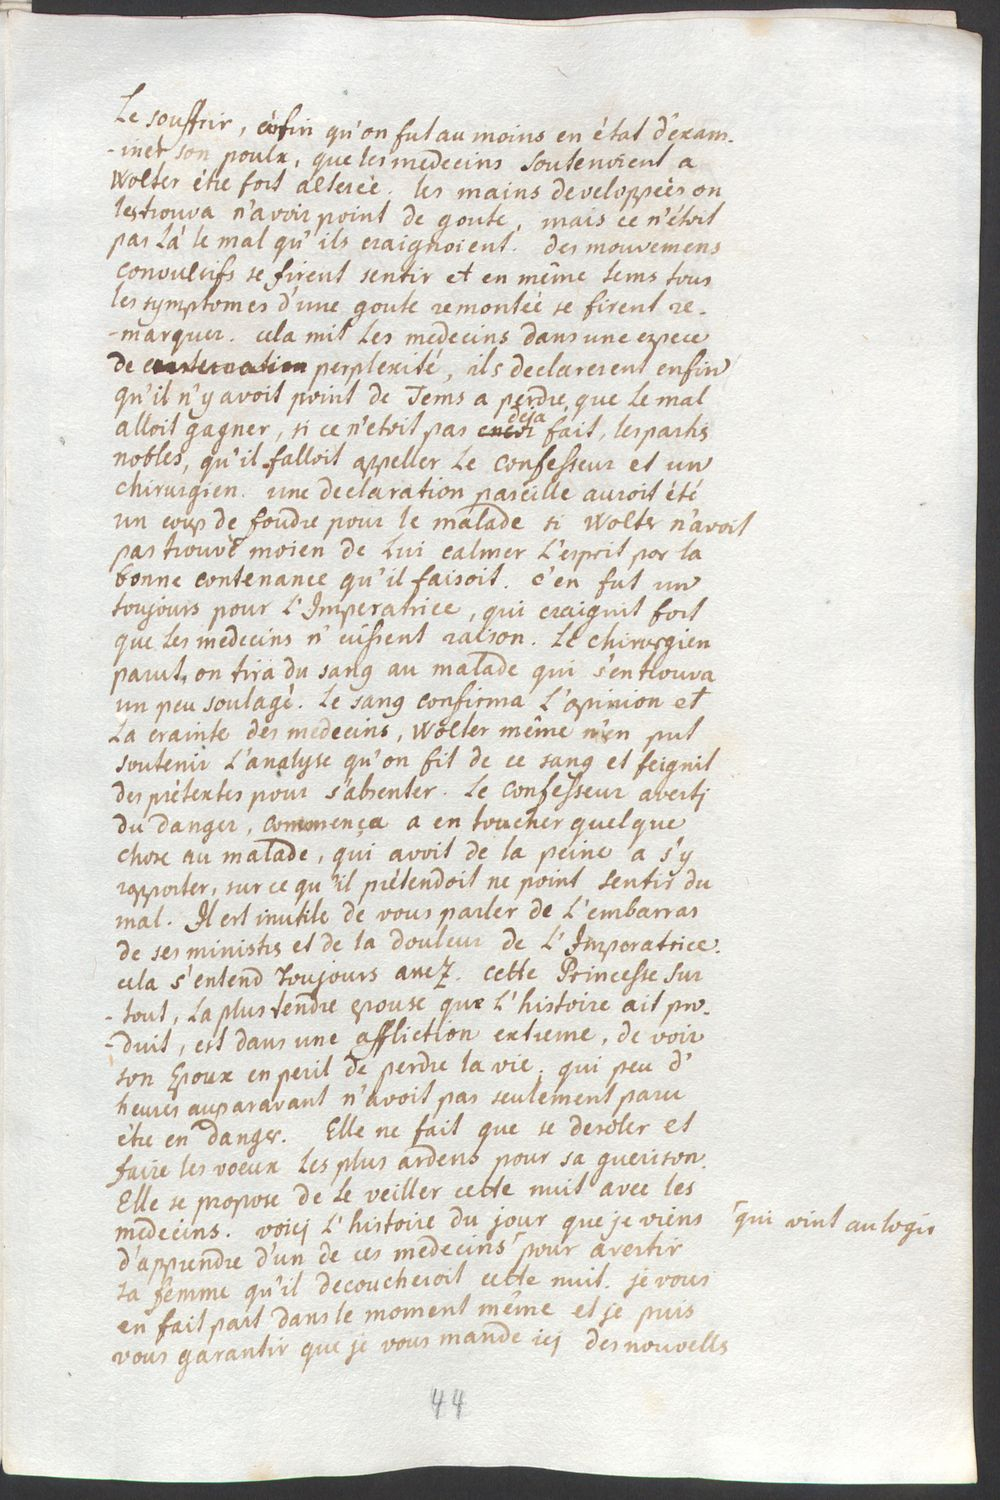 Le souffrir, enfin qu'on fut au moins en état d'exam-
-iner son poulx, que les medecins soutenoient a
Wolter étre fort alterée. les mains developpées on
les trouva n'avoir point de goute, mais ce n'étoit
pas là le mal qu'ils craignoient. des mouvemens
convulsifs se firent sentir et en même tems tous
les symptomes d'une goute remontée se firent re-
-marquer. cela mit les medecins dans une espece
de consternation perplexité, ils declarerent enfin
qu'il n'y avoit point de Tems a perdre, que le mal
deja
alloit gagner, si ce n'étoit pas encor fait, les partis
nobles, qu'il falloit appeller le confesseur et un
chirurgien. une declaration pareille auroit été
un coup de foudre pour le malade si Wolter n'avoit
pas trouvé moien de lui calmer l'esprit por la
bonne contenance qu'il faisoit. c'en fut un
toujours pour l'Imperatrice, qui craignit fort
que les medecins n'eussent raison. Le chirurgien
parut, on tira du sang au malade qui s'en trouva
un peu soulagé. Le sang confirma l'opinion et
La crainte des medecins, Wolter même n'en put
soutenir l'analyse qu'on fit de ce sang et feignit
des prétextes pour s'absenter. Le confesseur averti
du danger, commença a en toucher quelque
chose au malade, qui avoit de la peine a s'y
rapporter, sur ce qu'il prétendoit ne point sentir du
mal. Il est inutile de vous parler de l'embarras
de ses ministrs et de la douleur de l'Imperatrice.
cela s'entend toujours assez. cette Princesse sur
-tout, la plus tendre epouse que l'histoire ait pro-
-duit, est dans une affliction extreme, de voir
son Epoux en peril de perdre la vie, qui peu d'
heures auparavant n'avoit pas seulement paru
étre en danger. Elle ne fait que se desoler et
faire les voeux les plus ardens pour sa guerison.
Elle se propose de le veiller cette nuit avec les
medecins. voicj l'histoire du jour que je viens
qui vint au logis
d'apprendre d'un de ces medecins pour avertir
sa femme qu'il decoucheroit cette nuit. je vous
en fait part dans le moment même et je puis
vous garantir que je vous mande icj des nouvells
44